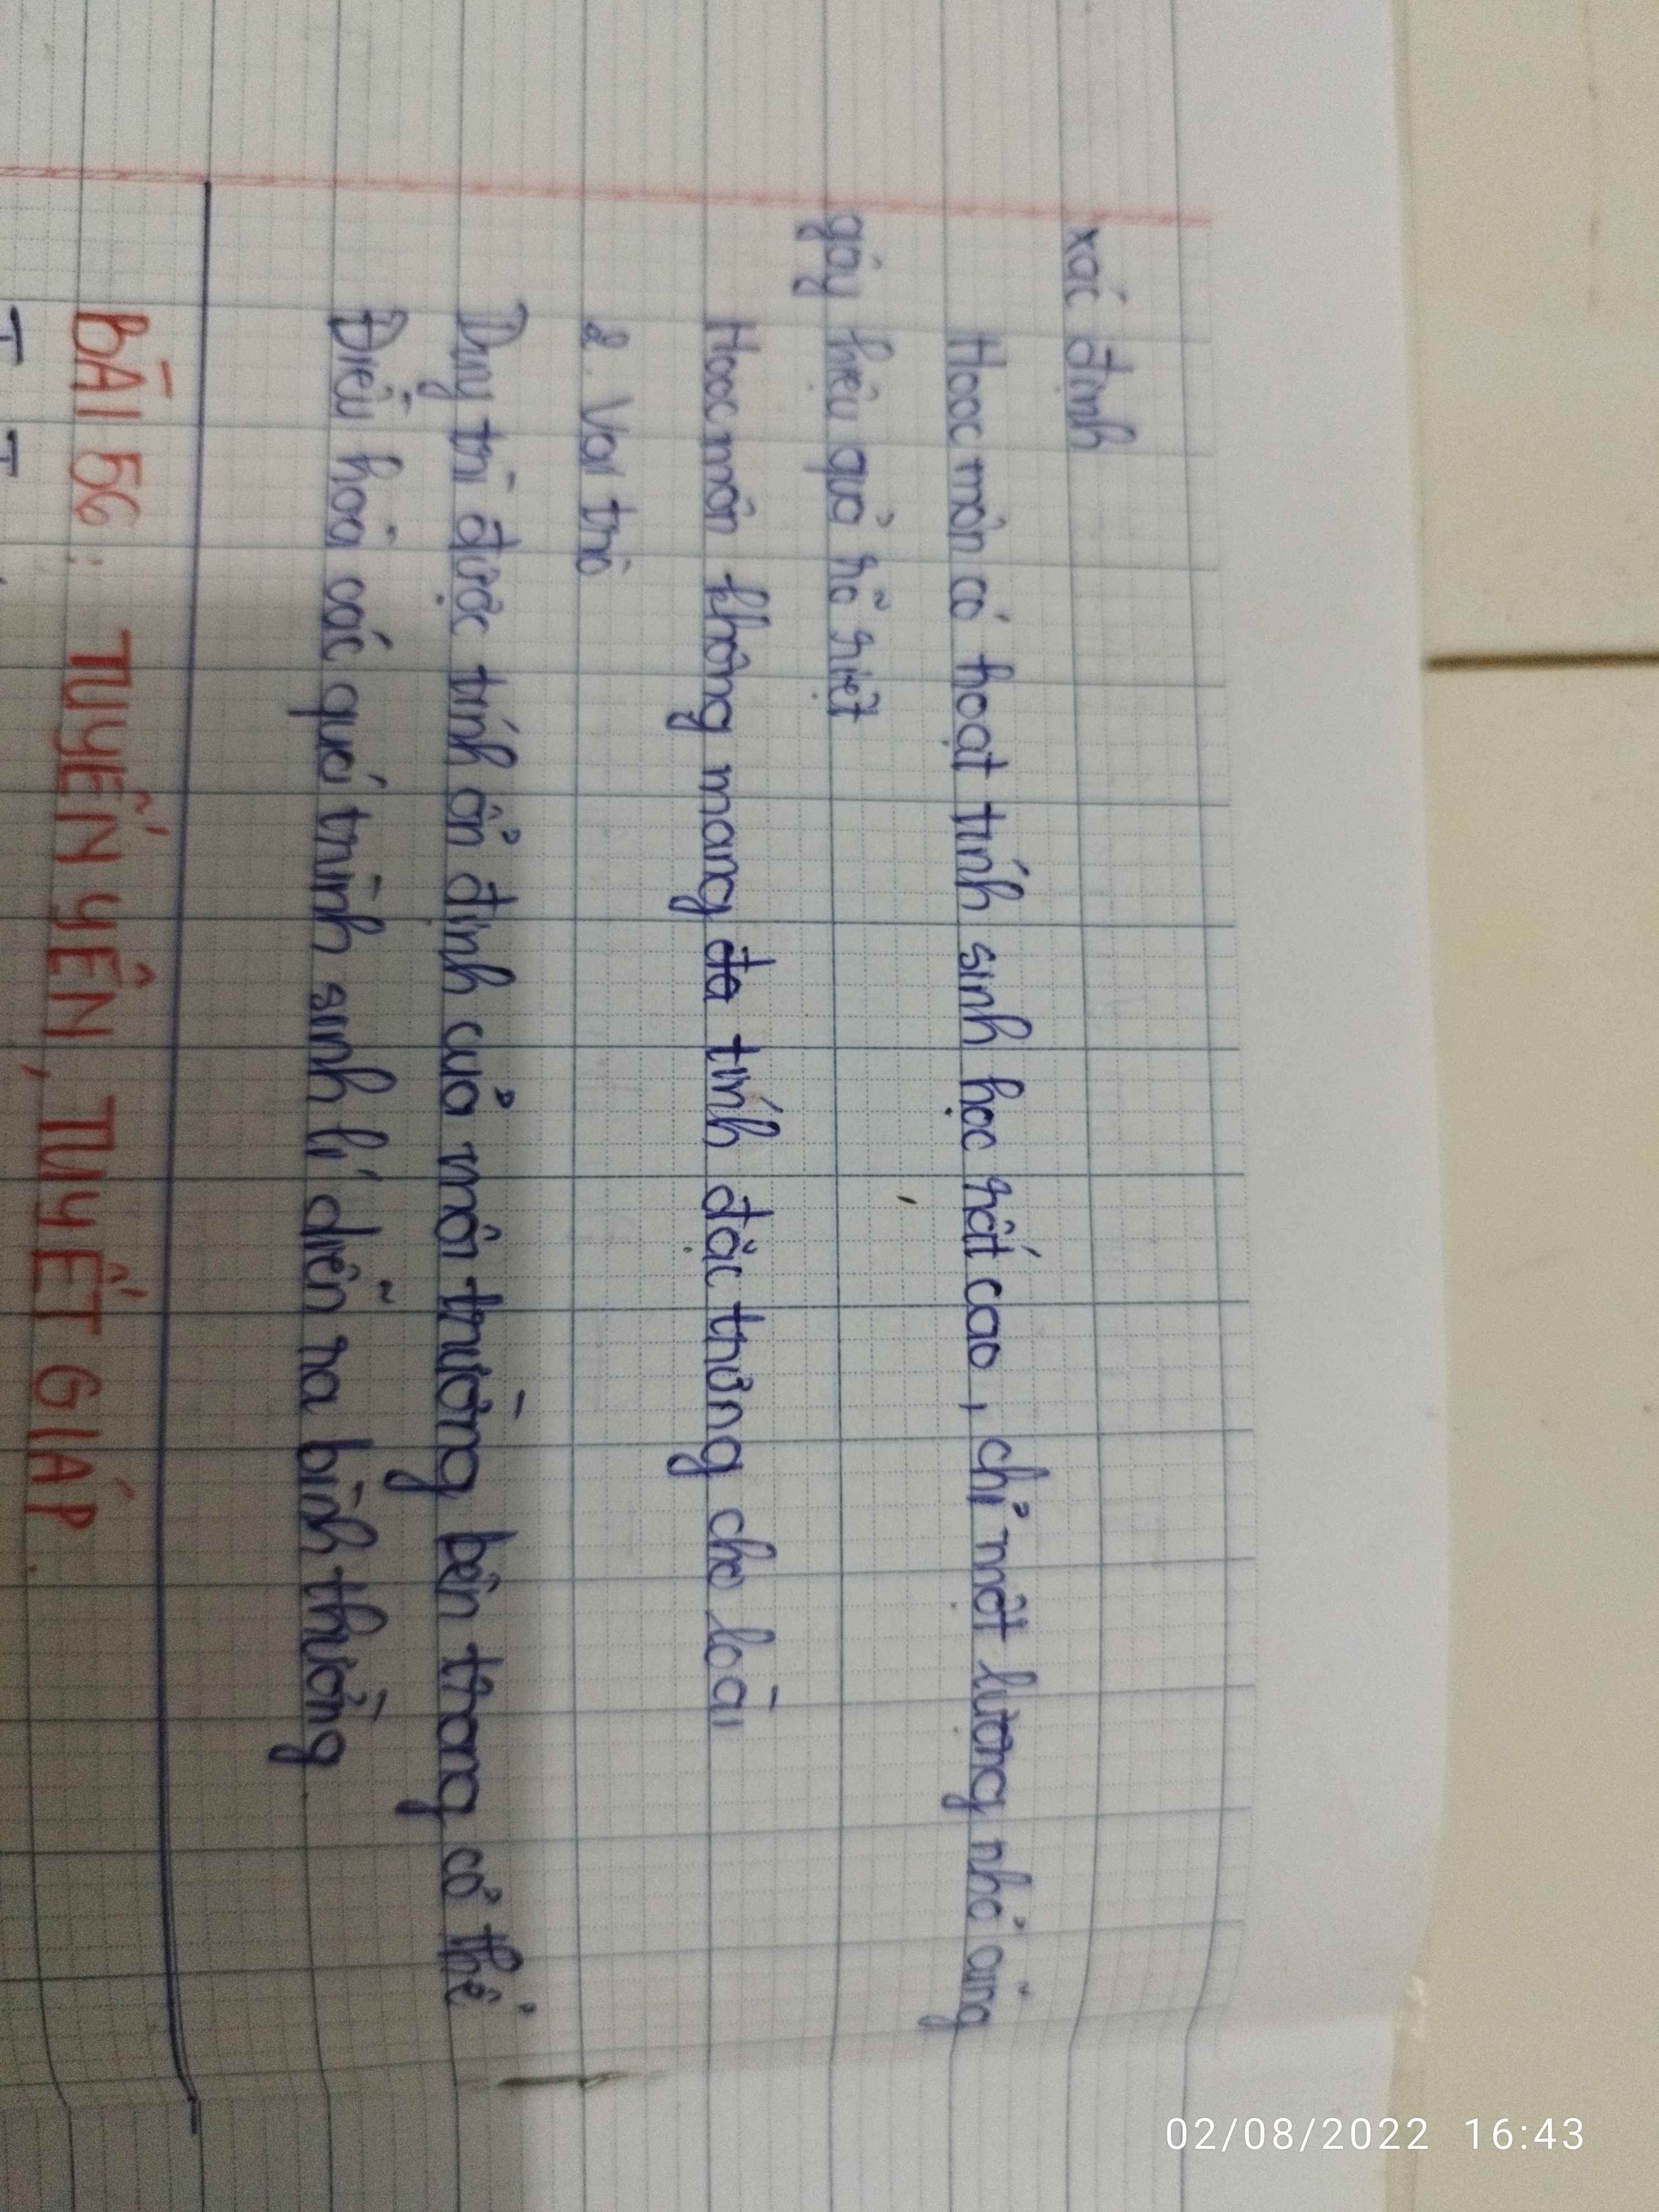 xác định
Hoocmôn có hoạt tính sinh học rất cao, chỉ một lượng nhỏ cũng
gây hiệu quả rõ rệt
Hoocmôn không mang tính đặc trưng cho loài
2. Vai trò
Duy trì được tính ổn định của môi trường bên trong cơ thể
Điều hoà các quá trình sinh lí diễn ra bình thường.
BÀI 56: TUYẾN YÊN, TUYẾT GIÁP.
02/08/2022 16:43